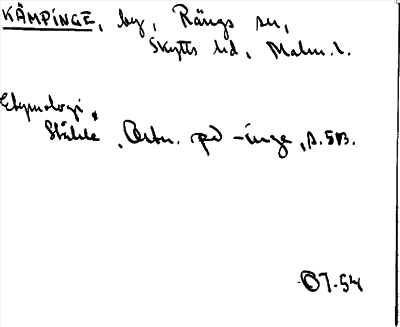 KÄMPINGE, by, Rängs sn,
Skytts hd, Malm. l.
Etymologi,
Ståhle, Ortn. på -inge, s. 513.
OJ.54